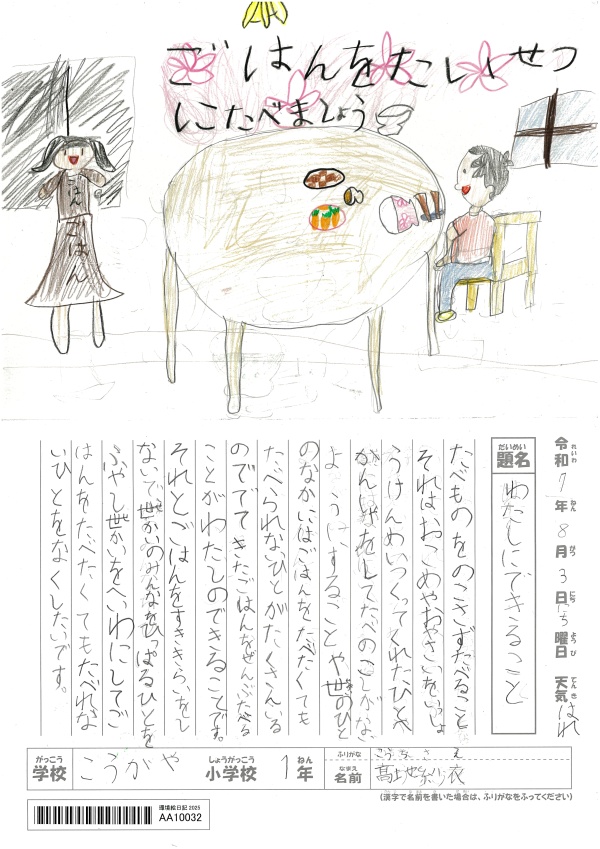 ごはんをたいせつ
にたべましょう
ごはん
ごはん
令和 れいわ 7年 ねん 8月 がつ 3日 にち にち曜日 ようび 天気 てんき はれ
題名 だいめい わたしにできること
たべものをのこさずたべること
それはおこめやおやさいをいっしょ
うけんめいつくってくれたひとへ
がんしゃをしてたべのこしがな
よ うにすること や世のひと
のなかにはごはんをたべたくても
たべられないひとがたくさんいる
のででてきたごはんをぜんぶたべる
ことがわたしのできることです。
それとごはんをすききらいをし
ないで世かいのみんなをひっぱるひとを
ふやし世かいをへいわにしてご
はんをたべたくてもたべれな
いひとをなくしたいです。
学校 がっこう こうがや 小学校 しょうがっこう 1年 ねん
ふりがな こうち さえ
名前 なまえ 髙地紗衣
(漢字で名前を書いた場合は、ふりがなをふってください)
環境絵日記 2025
AA10032